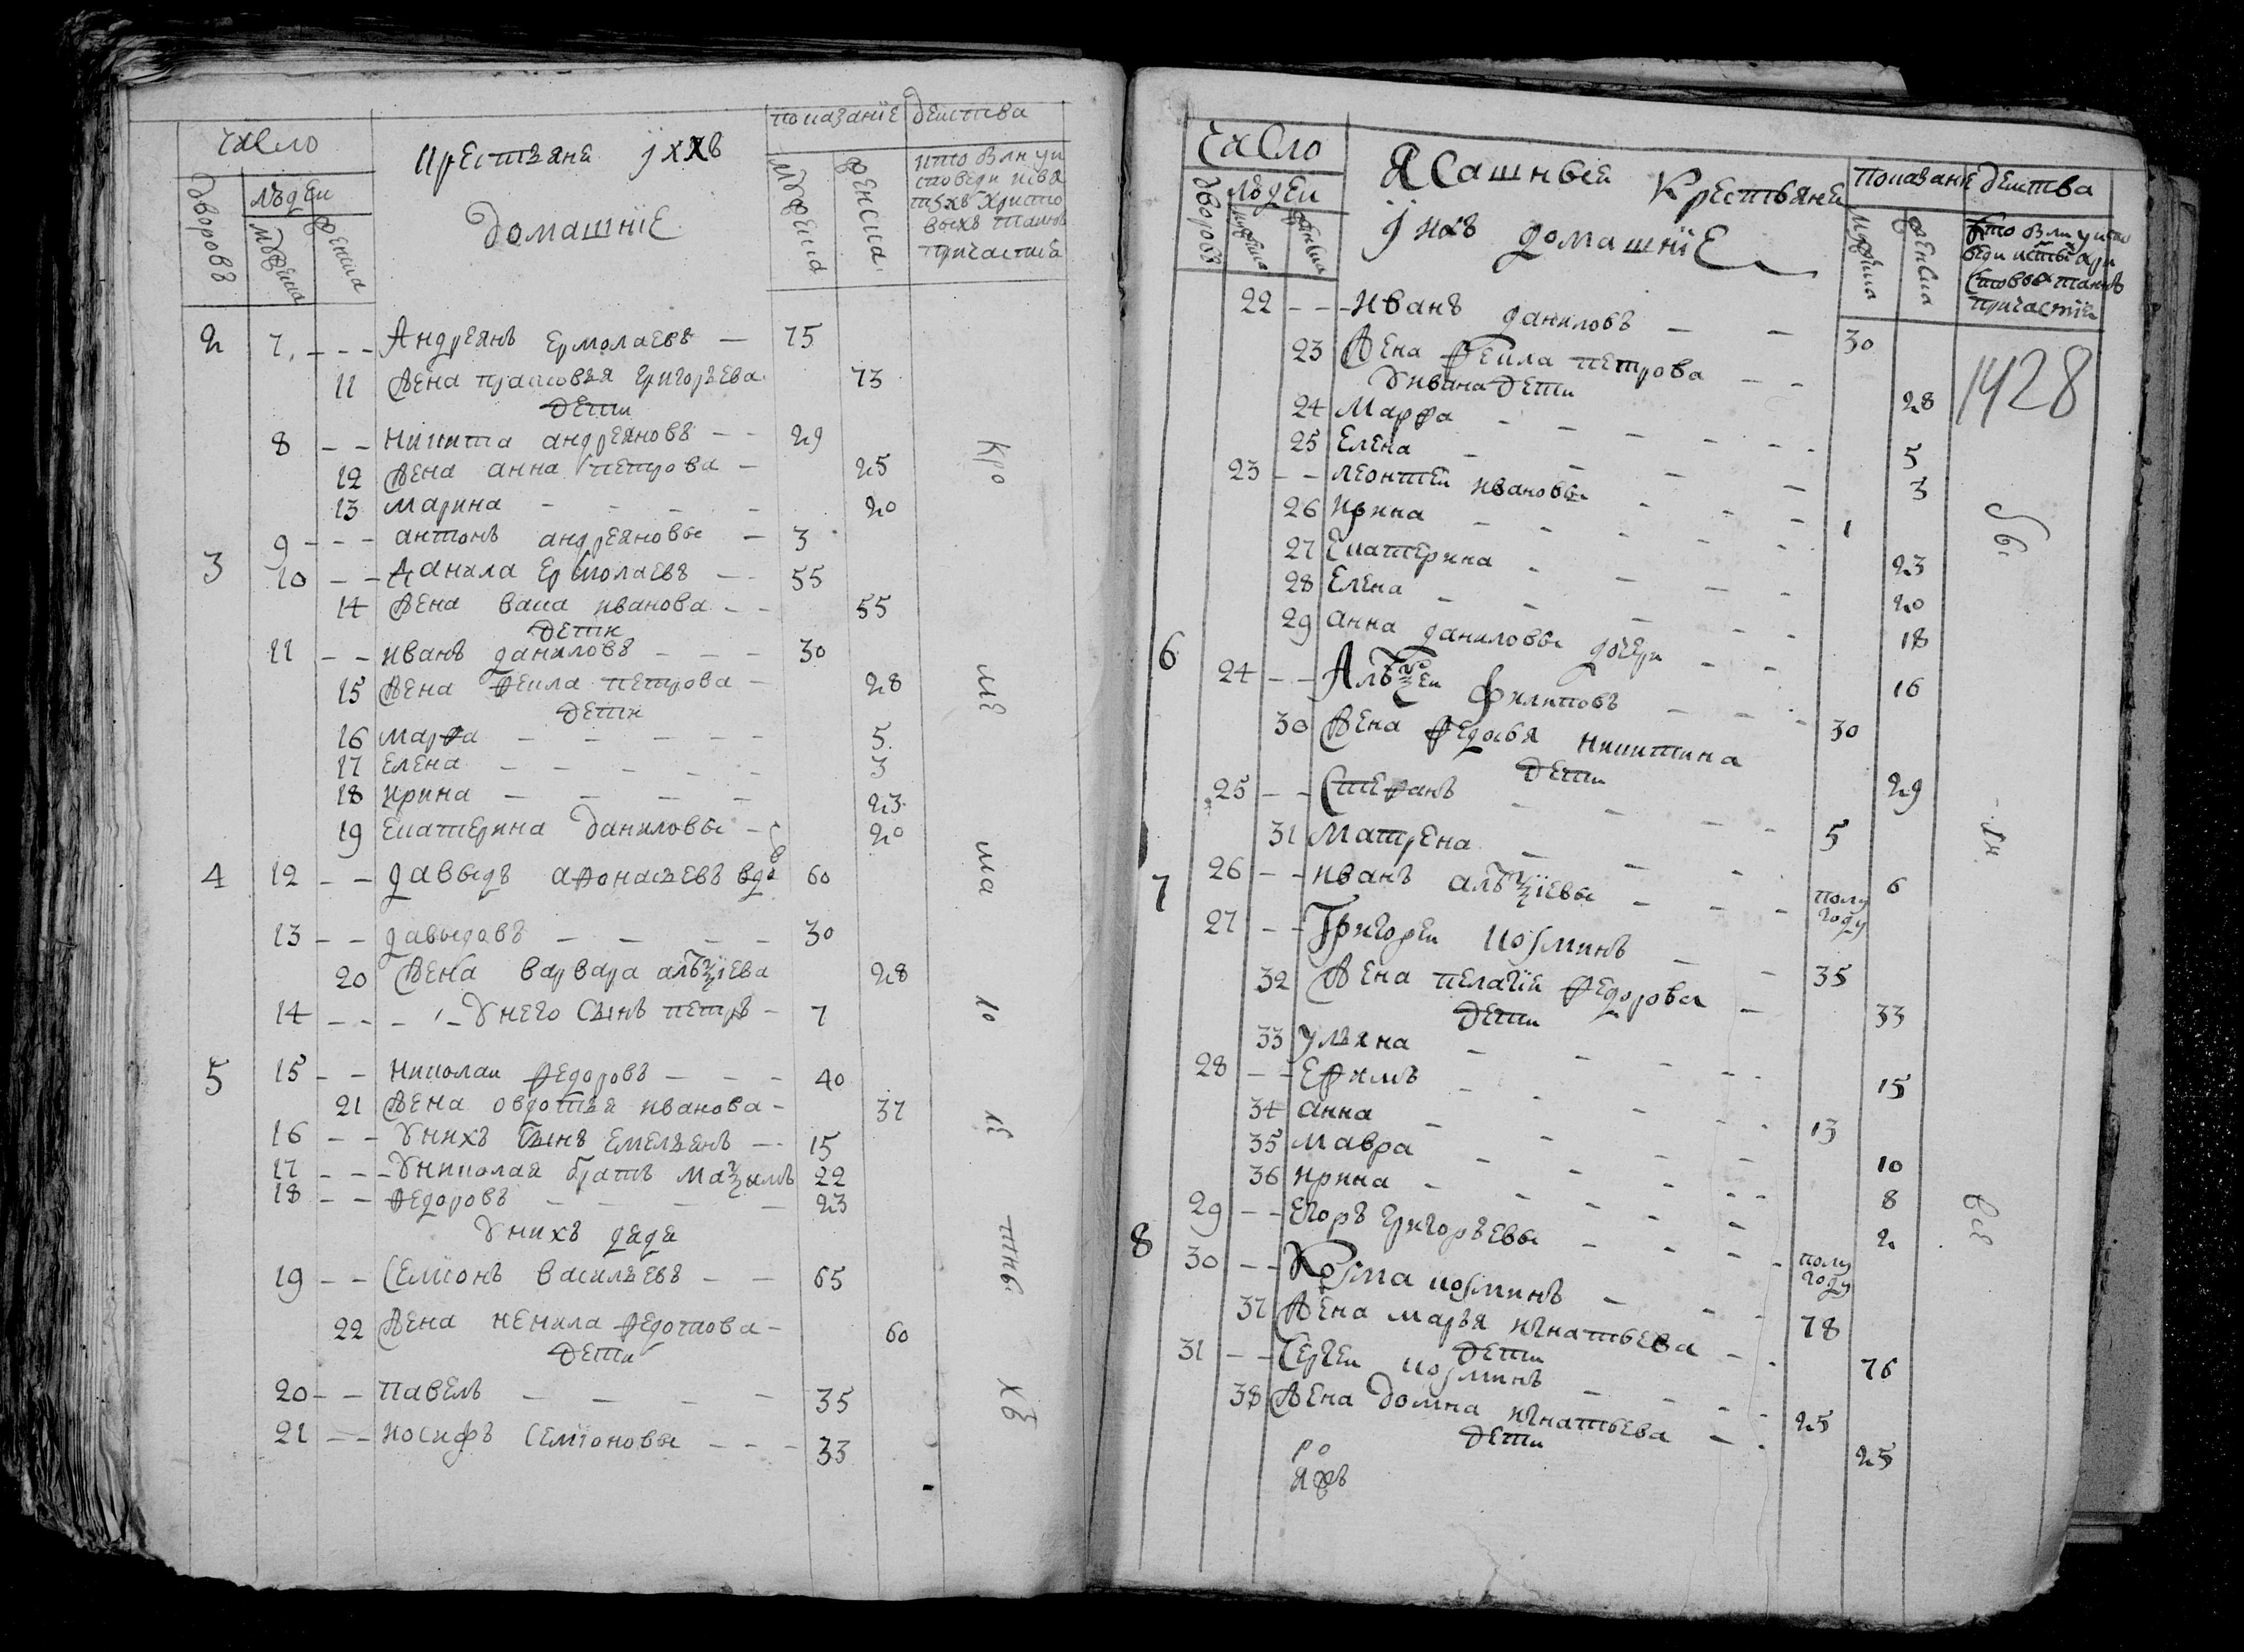 число
крестьяне ихъ
домашнїе
показанїе действа
дворовъ
людеи
мужеска
женска
мужеска
женска
кто были у и
споведи и свя
тыхъ Христо
выхъ таинъ
причастия
2 7 Андреянъ Ермолаевъ 75
11 Жена прасковья григорьева 73
дети
8 никита андреяновъ 29
12 Жена анна петрова 25
13 марина 20
9 антонъ андреяновы 3
3 10 Данила Ермолаевъ 55
14 Жена васа иванова 55
дети
11 иванъ даниловъ 30
15 Жена фекла петрова 28
дети
16 марфа 5
17 елена 3
18 ирина 23
19 екатерина даниловы 20
4 12 давыдъ афонасьевъ вдовъ 60
13 давыдовъ 30
20 Жена варвара алѣѯїева 28
14 у него сынъ петръ 7
5 15 николаи федоровъ 40
21 Жена овдотья иванова 37
16 у нихъ сынъ емельянъ 15
17 у николая братъ маѯимъ 22
18 федоровъ 23
у нихъ дядя
19 семїонъ васильевъ 65
22 Жена ненила федотова 60
дети
20 павелъ 35
21 иосифъ семїоновы 33
кро
ме
ма
ло
лѣ
тны
хъ
число
Ясашныеи крестьянеи
ихъ домашнїе
показанїе действа
дворовъ
людеи
мужеска
женска
мужеска
женска
кто были у испо
веди
стовыхъ таинъ
причастїи
1428
22 иванъ даниловъ 30
23 Жена фекла петрова 28
у ивана дети
24 Марфа 5
25 Елена 3
23 леонтеи ивановы 1
26 ирина 23
27 Екатерина 20
28 Елена 18
29 анна даниловы дочери 16
6 24 Алѣѯеи филиповъ 30
30 Жена федосья никитина 29
дети
25 Стефанъ 5
31 Матрена 6
26 иванъ алѣѯїевы полу
году
7 27 Григореи козминъ 35
32 Жена пелагїя федорова 33
дети
33 ульяна 15
28 ефимъ 13
34 анна 10
35 мавра 8
36 ирина 2
29 егоръ григорьевы полу
году
8 30 Козма козминъ 78
37 Жена марья игнатьева 76
дети
31 Сергеи козминъ 25
38 Жена домна игнатьева 25
дети
бы
ли
всѣ